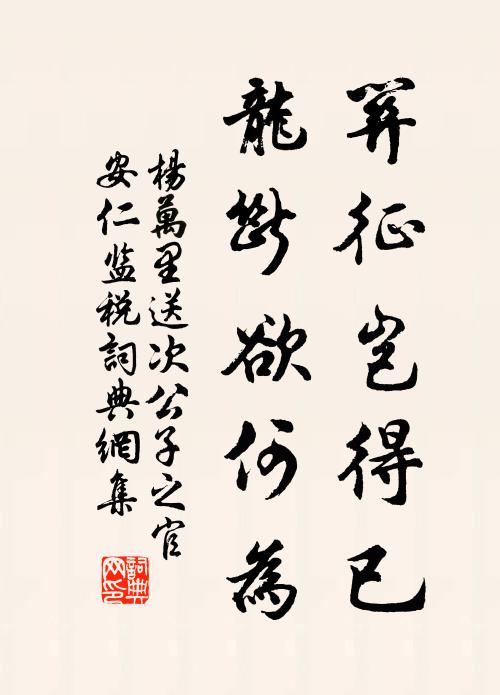 關征岂得已
龍斷欲何為
楊萬里送次公子之官
安仁监税詞典網集
詞典
网印